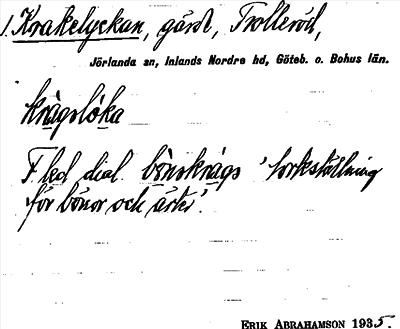 1. Krakelyckan, gärde, Trolleröd,
Jörlanda sn, Inlands Nordre hd, Göteb. o. Bohus län.
krågslöka
F. led dial. bönskrågs 'torkställning
för bönor och ärter'.
ERIK ABRAHAMSON 1935.